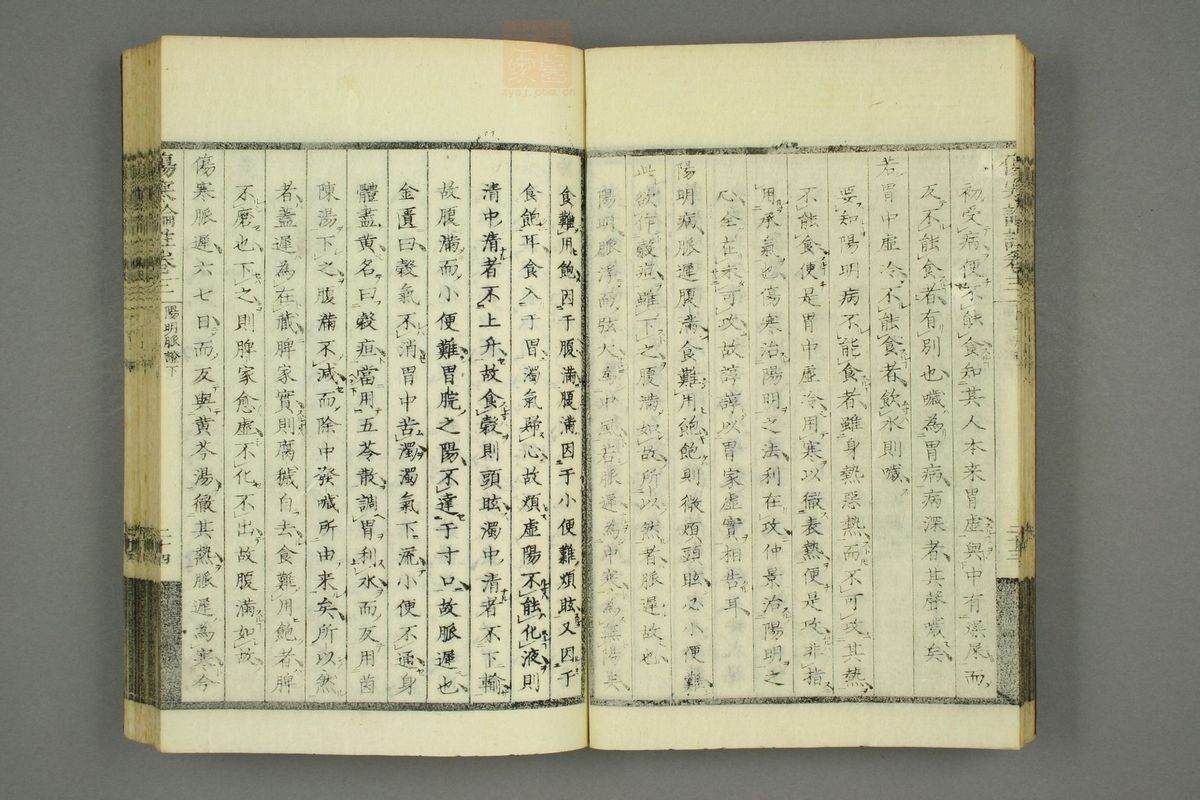 傷寒論註卷二
二十三
初受病便不能食知其人本来胃虚與中有燥屎而
反不能食者有別也噦為胃病病深者其聲噦矣
若胃中虚冷不能食者飲水則噦
要知陽明病不能食者雖身熱惡熱而不可攻其熱
不能食便是胃中虚冷用寒以徹表熱便是攻非指
用承氣也傷寒治陽明之法利在攻仲景治陽明之
心全在未可攻故諄諄以胃家虚實相告耳
陽明病脈遲腹滿食難用飽飽則微煩頭眩必小便難
此欲作穀疸雖下之腹滿如故所以然者脈遲故也
陽明脈浮而弦大為中風若脈遲為中寒為無陽矣
食難用飽因于腹滿腹滿因于小便難煩眩又因于
食飽耳食入于胃濁氣歸心故煩虚陽不能化液則
清中清者不上升故食穀則頭眩濁中清者不下輸
故腹滿而小便難胃脘之陽不達于寸口故脈遲也
金匱曰穀氣不消胃中苦濁濁氣下流小便不通身
體盡黄名曰穀疸當用五苓散調胃利水而反用茵
陳湯下之腹滿不減而除中發噦所由来矣所以然
者蓋遲為在藏脾家實則腐穢自去食難用飽者脾
不磨也下之則脾家愈虚不化不出故腹滿如故
傷寒脈遲六七日而反與黄芩湯徹其熱脈遲為寒今
傷寒論註卷二 陽明脈證下 二十四
zysj.com.cn